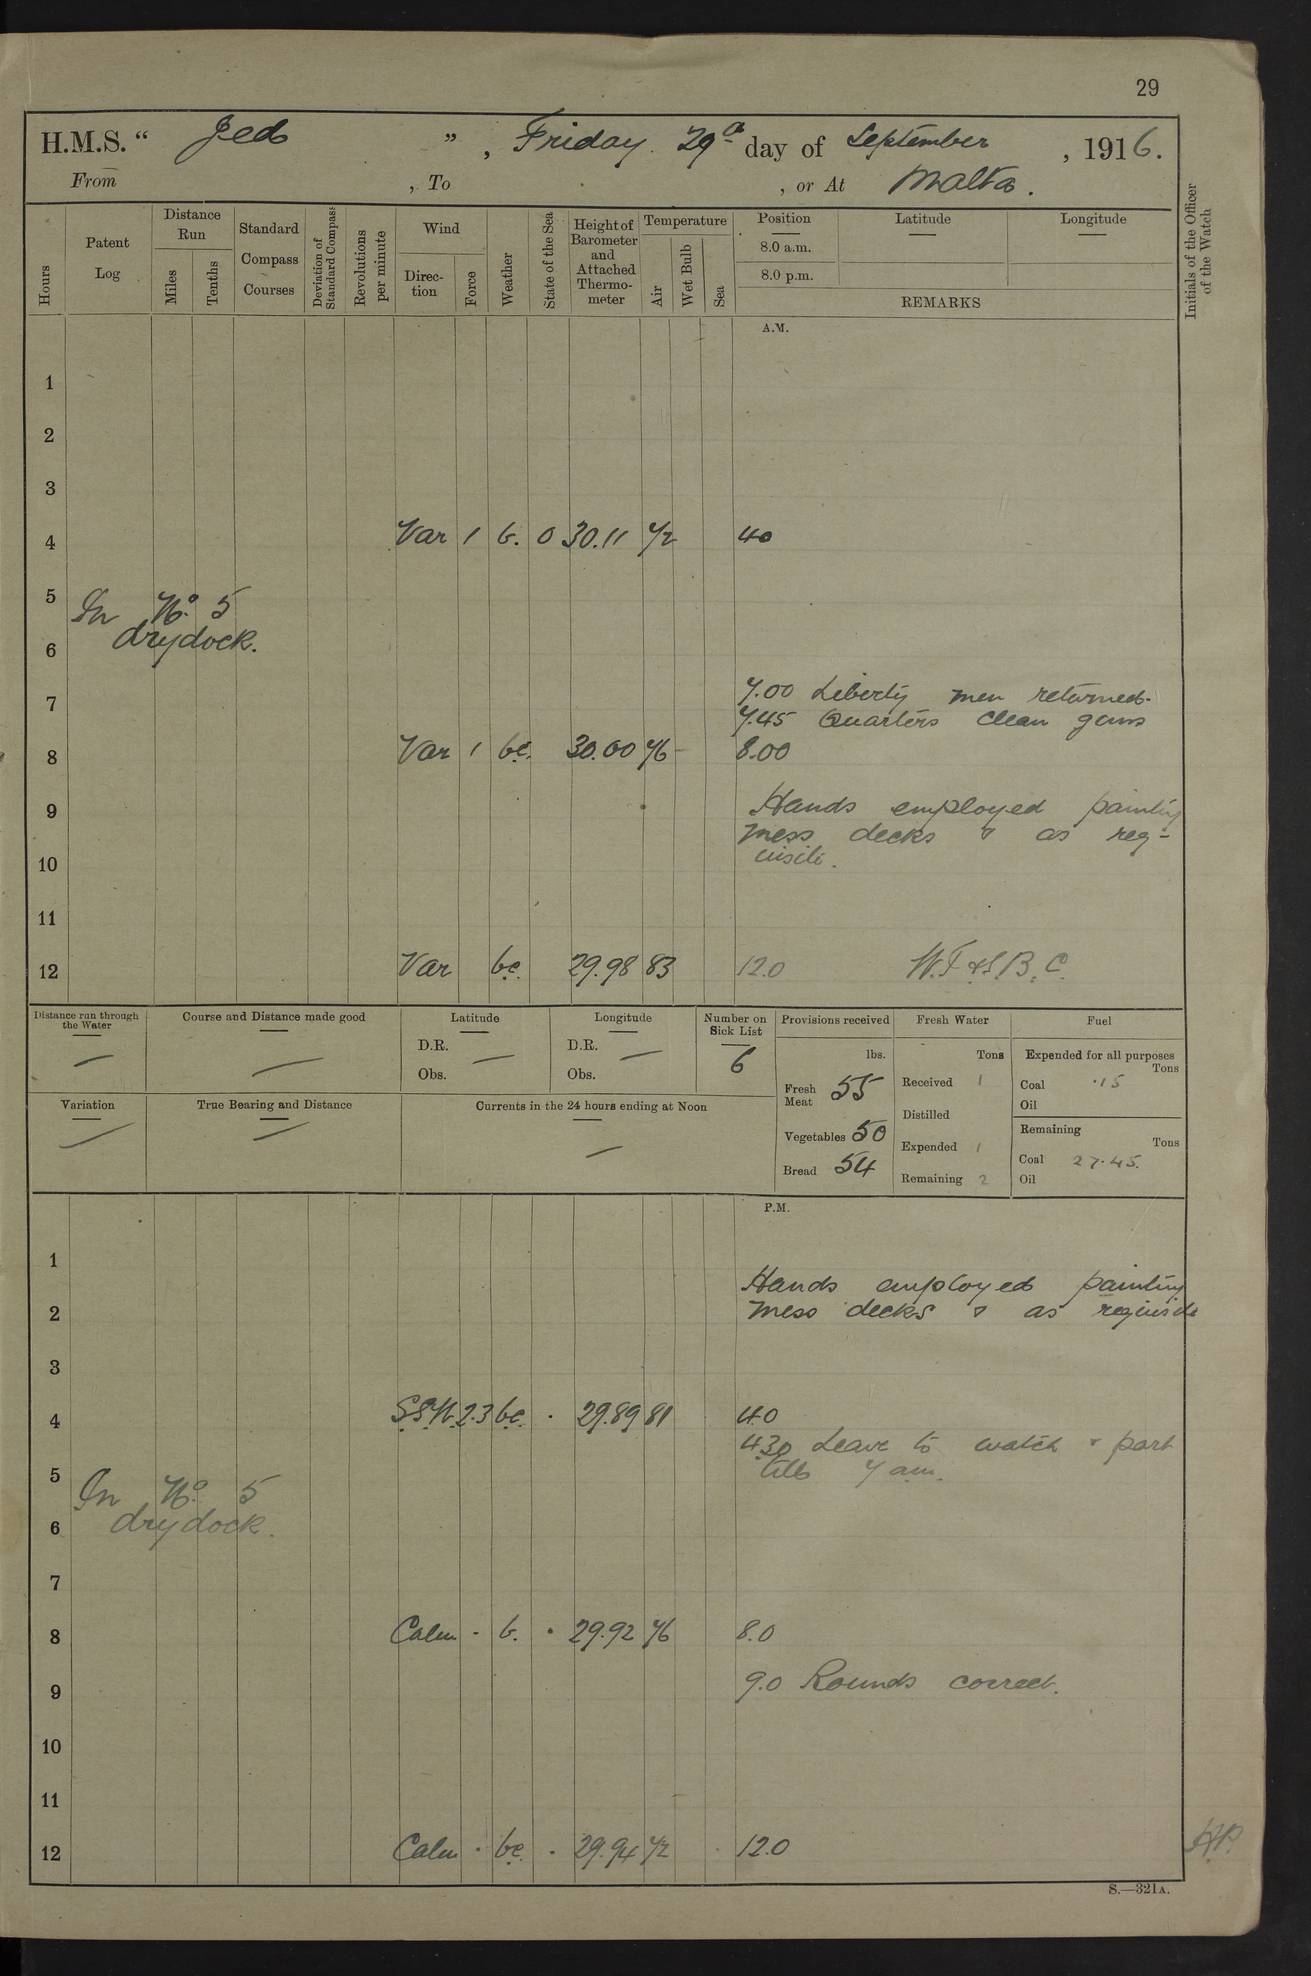 29
H.M.S. “ Jed ” , Friday 29th day of September , 1916.
From , To , or At Malta.
Hours
Patent Log
Distance Run
Miles
Tenths
Standard Compass Courses
Deviation of Standard Compass
Revolutions per minute
Wind
Direction
Force
Weather
State of the Sea
Height of Barometer and Attached Thermometer
Temperature
Air
Wet Bulb
Sea
Position
8.0 a.m.
8.0 p.m.
Latitude
Longitude
REMARKS
Initials of the Officer of the Watch
A.M.
1
2
3
4 Var 1 b. 0 30.11 72 40
5 In No. 5
6 drydock.
7 7.00 Liberty men returned.
7.45 Quarters clean guns
8 Var 1 bc. 30.00 76 8.00
9 Hands employed painting
mess decks & as req-
10 uisite.
11
12 Var bc. 29.98 83 12.0
Distance run through the Water —
Course and Distance made good —
Latitude
D.R. —
Obs.
Longitude
D.R. —
Obs.
Number on Sick List
6
Provisions received
lbs.
Fresh Meat 55
Vegetables 50
Bread 54
Fresh Water
Tons
Received 1
Distilled
Expended 1
Remaining 2
Fuel
Expended for all purposes
Tons
Coal .15
Oil
Remaining
Tons
Coal 27.45.
Oil
Variation —
True Bearing and Distance —
Currents in the 24 hours ending at Noon —
P.M.
1 Hands employed painting
2 mess decks & as requisite
3
4 S.S.W. 2.3 bc. . 29.89 81 4.0
4.30 Leave to watch & part
5 In No. 5 till 7 am.
6 drydock.
7
8 Calm - b. . 29.92 76 8.0
9 9.0 Rounds correct.
10
11
12 Calm . bc. . 29.94 72 12.0
S.—321A.